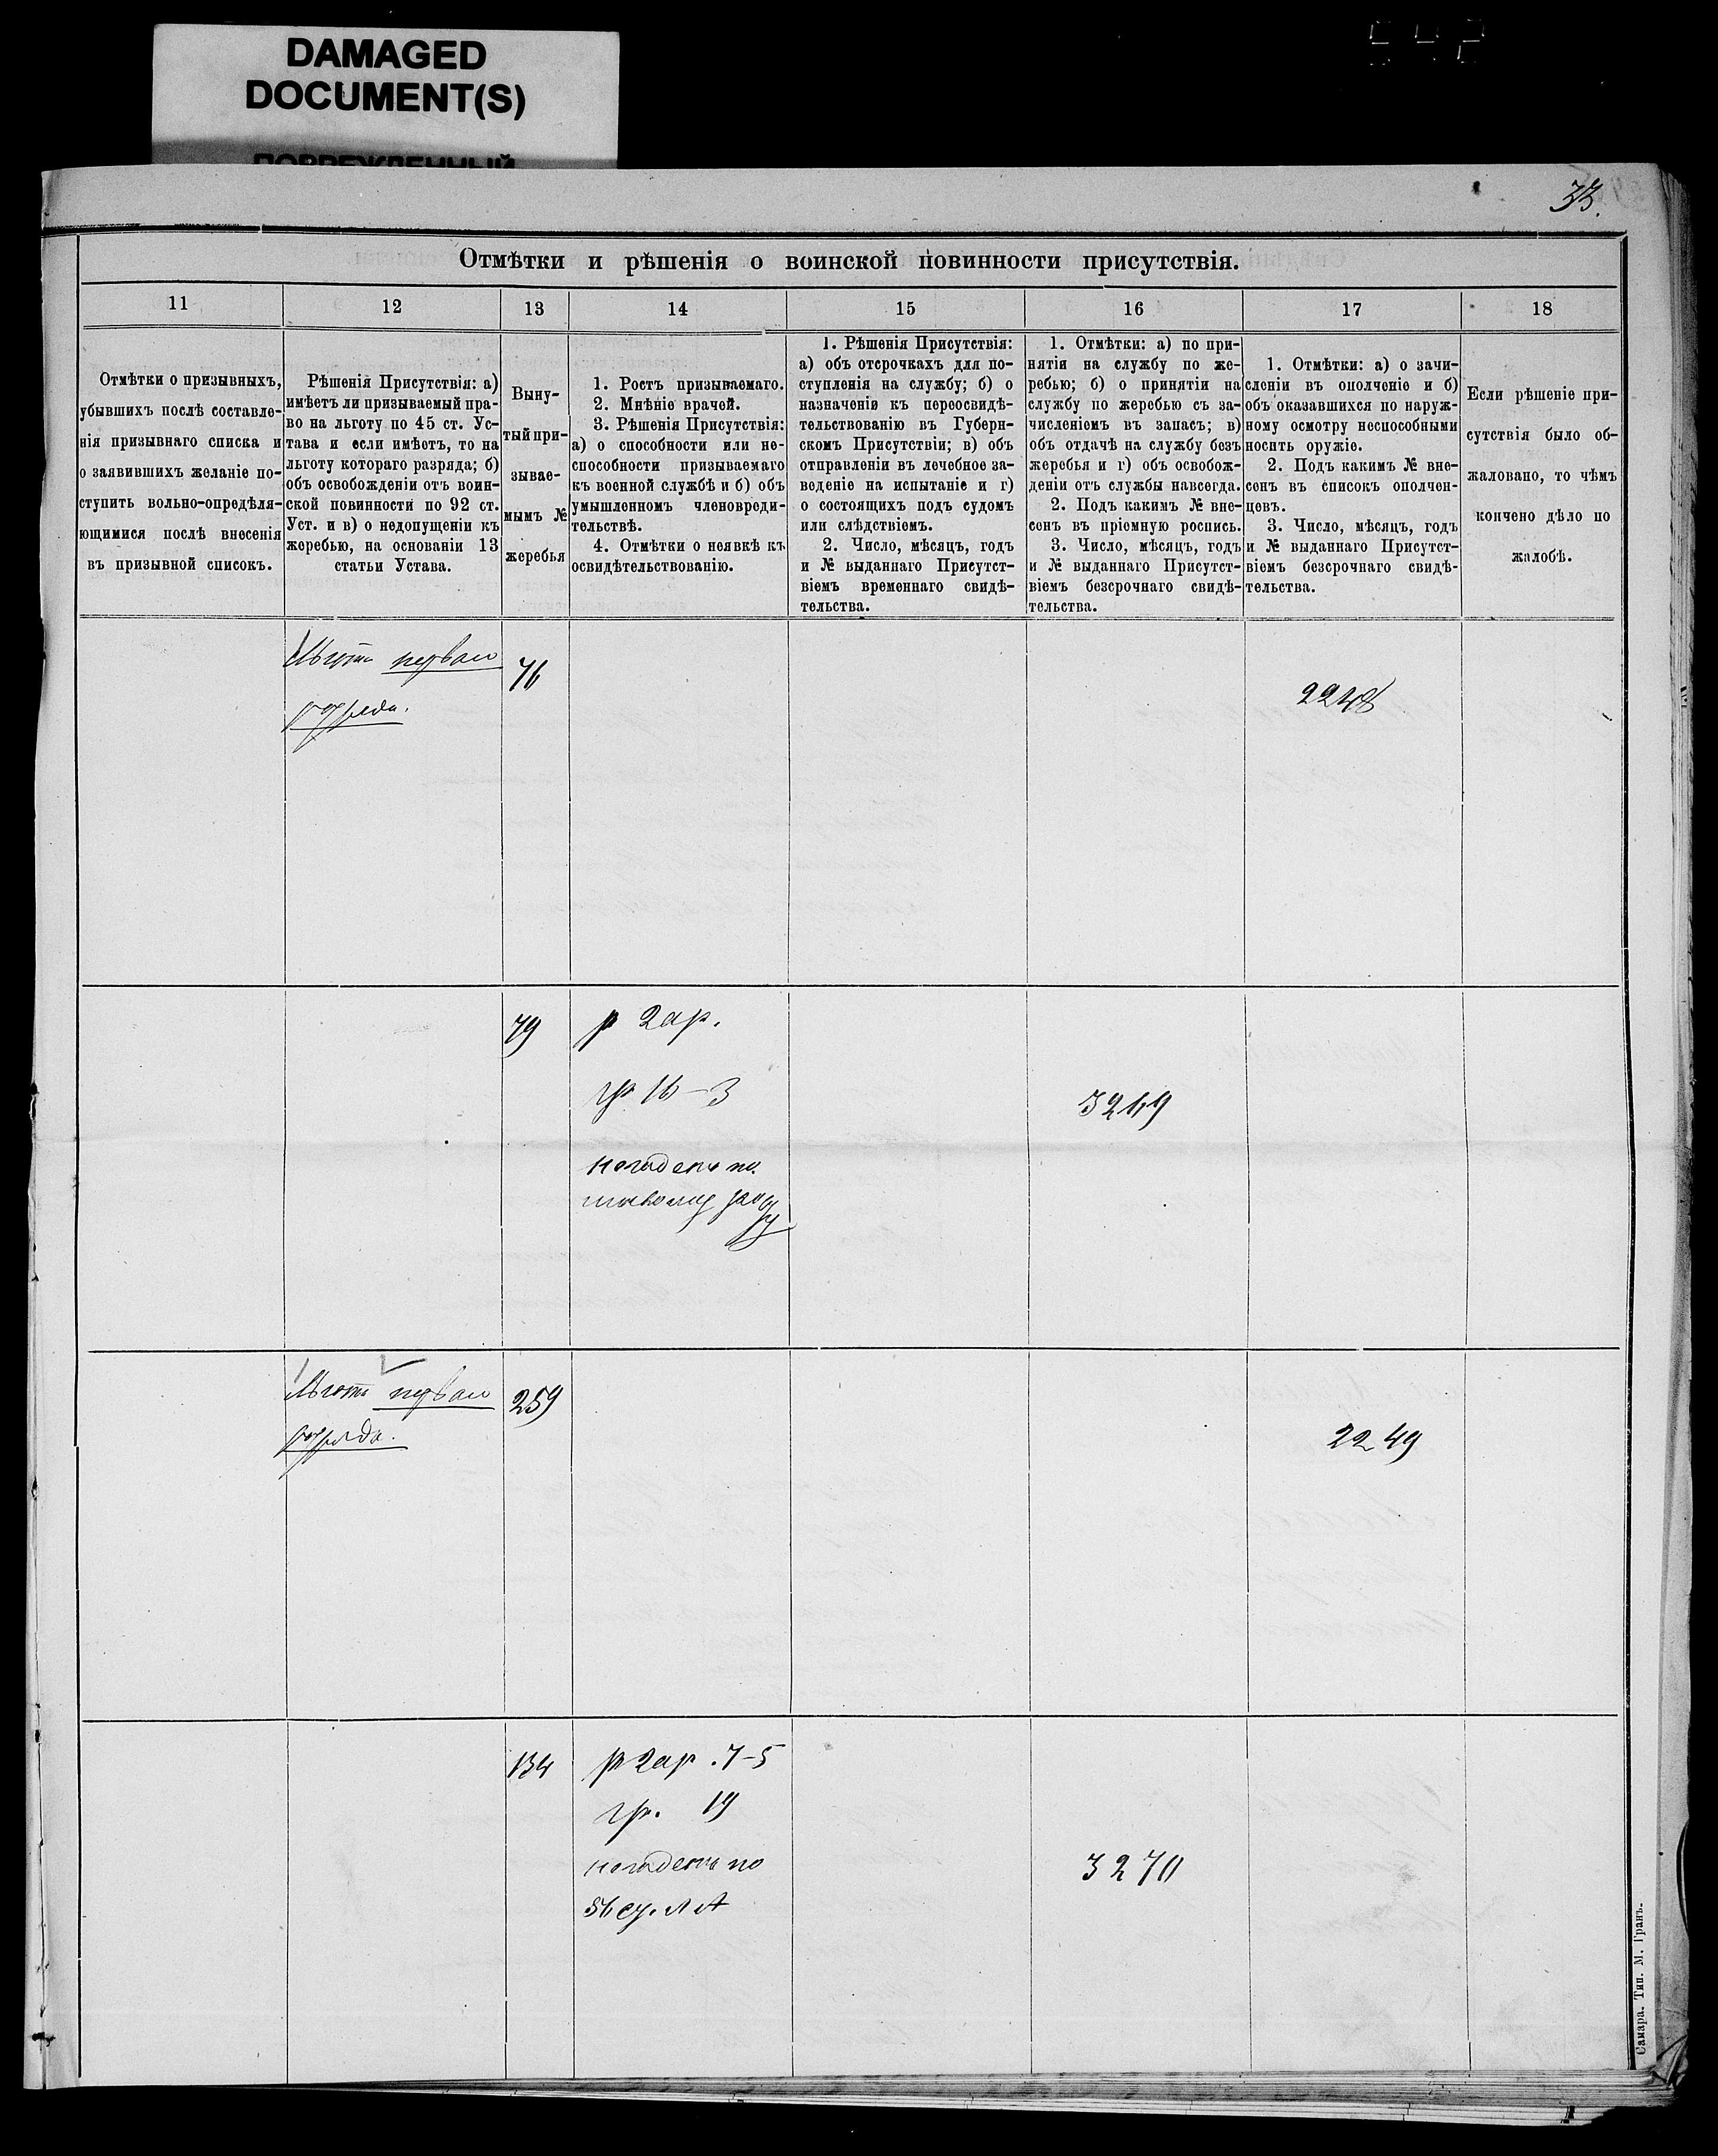 DAMAGED
DOCUMENT(S)
33.
Отмѣтки и рѣшенія о воинской повинности присутствія.
11
12
13
14
15
16
17
18
Отмѣтки о призывныхъ,
убывшихъ послѣ составле-
нія призывнаго списка и
о заявившихъ желаніе по-
ступить вольно-опредѣля-
ющимися послѣ внесенія
въ призывной списокъ.
Рѣшенія Присутствія: а)
имѣетъ ли призываемый пра-
во на льготу по 45 ст. Ус-
тава и если имѣетъ, то на
льготу котораго разряда; б)
объ освобожденіи отъ воин-
ской повинности по 92 ст.
Уст. и в) о недопущеніи къ
жеребью, на основаніи 13
статьи Устава.
Выну-
тый при-
зывае-
мымъ №
жеребья
1. Ростъ призываемаго.
2. Мнѣніе врачей.
3. Рѣшенія Присутствія:
а) о способности или не-
способности призываемаго
къ военной службѣ и б) объ
умышленномъ членовреди-
тельствѣ.
4. Отмѣтки о неявкѣ къ
освидѣтельствованію.
1. Рѣшенія Присутствія:
а) объ отсрочкахъ для по-
ступленія на службу; б) о
назначеніи къ переосвидѣ-
тельствованію въ Губерн-
скомъ Присутствіи; в) объ
отправленіи въ лечебное за-
веденіе на испытаніе и г)
о состоящихъ подъ судомъ
или слѣдствіемъ.
2. Число, мѣсяцъ, годъ
и № выданнаго Присутст-
віемъ временнаго свидѣ-
тельства.
1. Отмѣтки: а) по при-
нятіи на службу по же-
ребью; б) о принятіи на
службу по жеребью съ за-
численіемъ въ запасъ; в)
объ отдачѣ на службу безъ
жеребья и г) объ освобож-
деніи отъ службы навсегда.
2. Подъ какимъ № вне-
сенъ въ пріемную роспись.
3. Число, мѣсяцъ, годъ
и № выданнаго Присутст-
віемъ безсрочнаго свидѣ-
тельства.
1. Отмѣтки: а) о зачи-
сленіи въ ополченіе и б)
объ оказавшихся по наруж-
ному осмотру неспособными
носить оружіе.
2. Подъ какимъ № вне-
сенъ въ список ополчен-
цевъ.
3. Число, мѣсяцъ, годъ
и № выданнаго Присутст-
віемъ безсрочнаго свидѣ-
тельства.
Если рѣшеніе при-
сутствія было об-
жаловано, то чѣмъ
кончено дѣло по
жалобѣ.
Льгота перваго
разряда.
76
2248
79
р 2 ар.
гр 16–3
негоденъ по
3269
Льгота перваго
разряда.
259
2249
134
р 2 ар. 7–5
гр. 19
негоденъ по
3270
Самара. Тип. М. Гранъ.